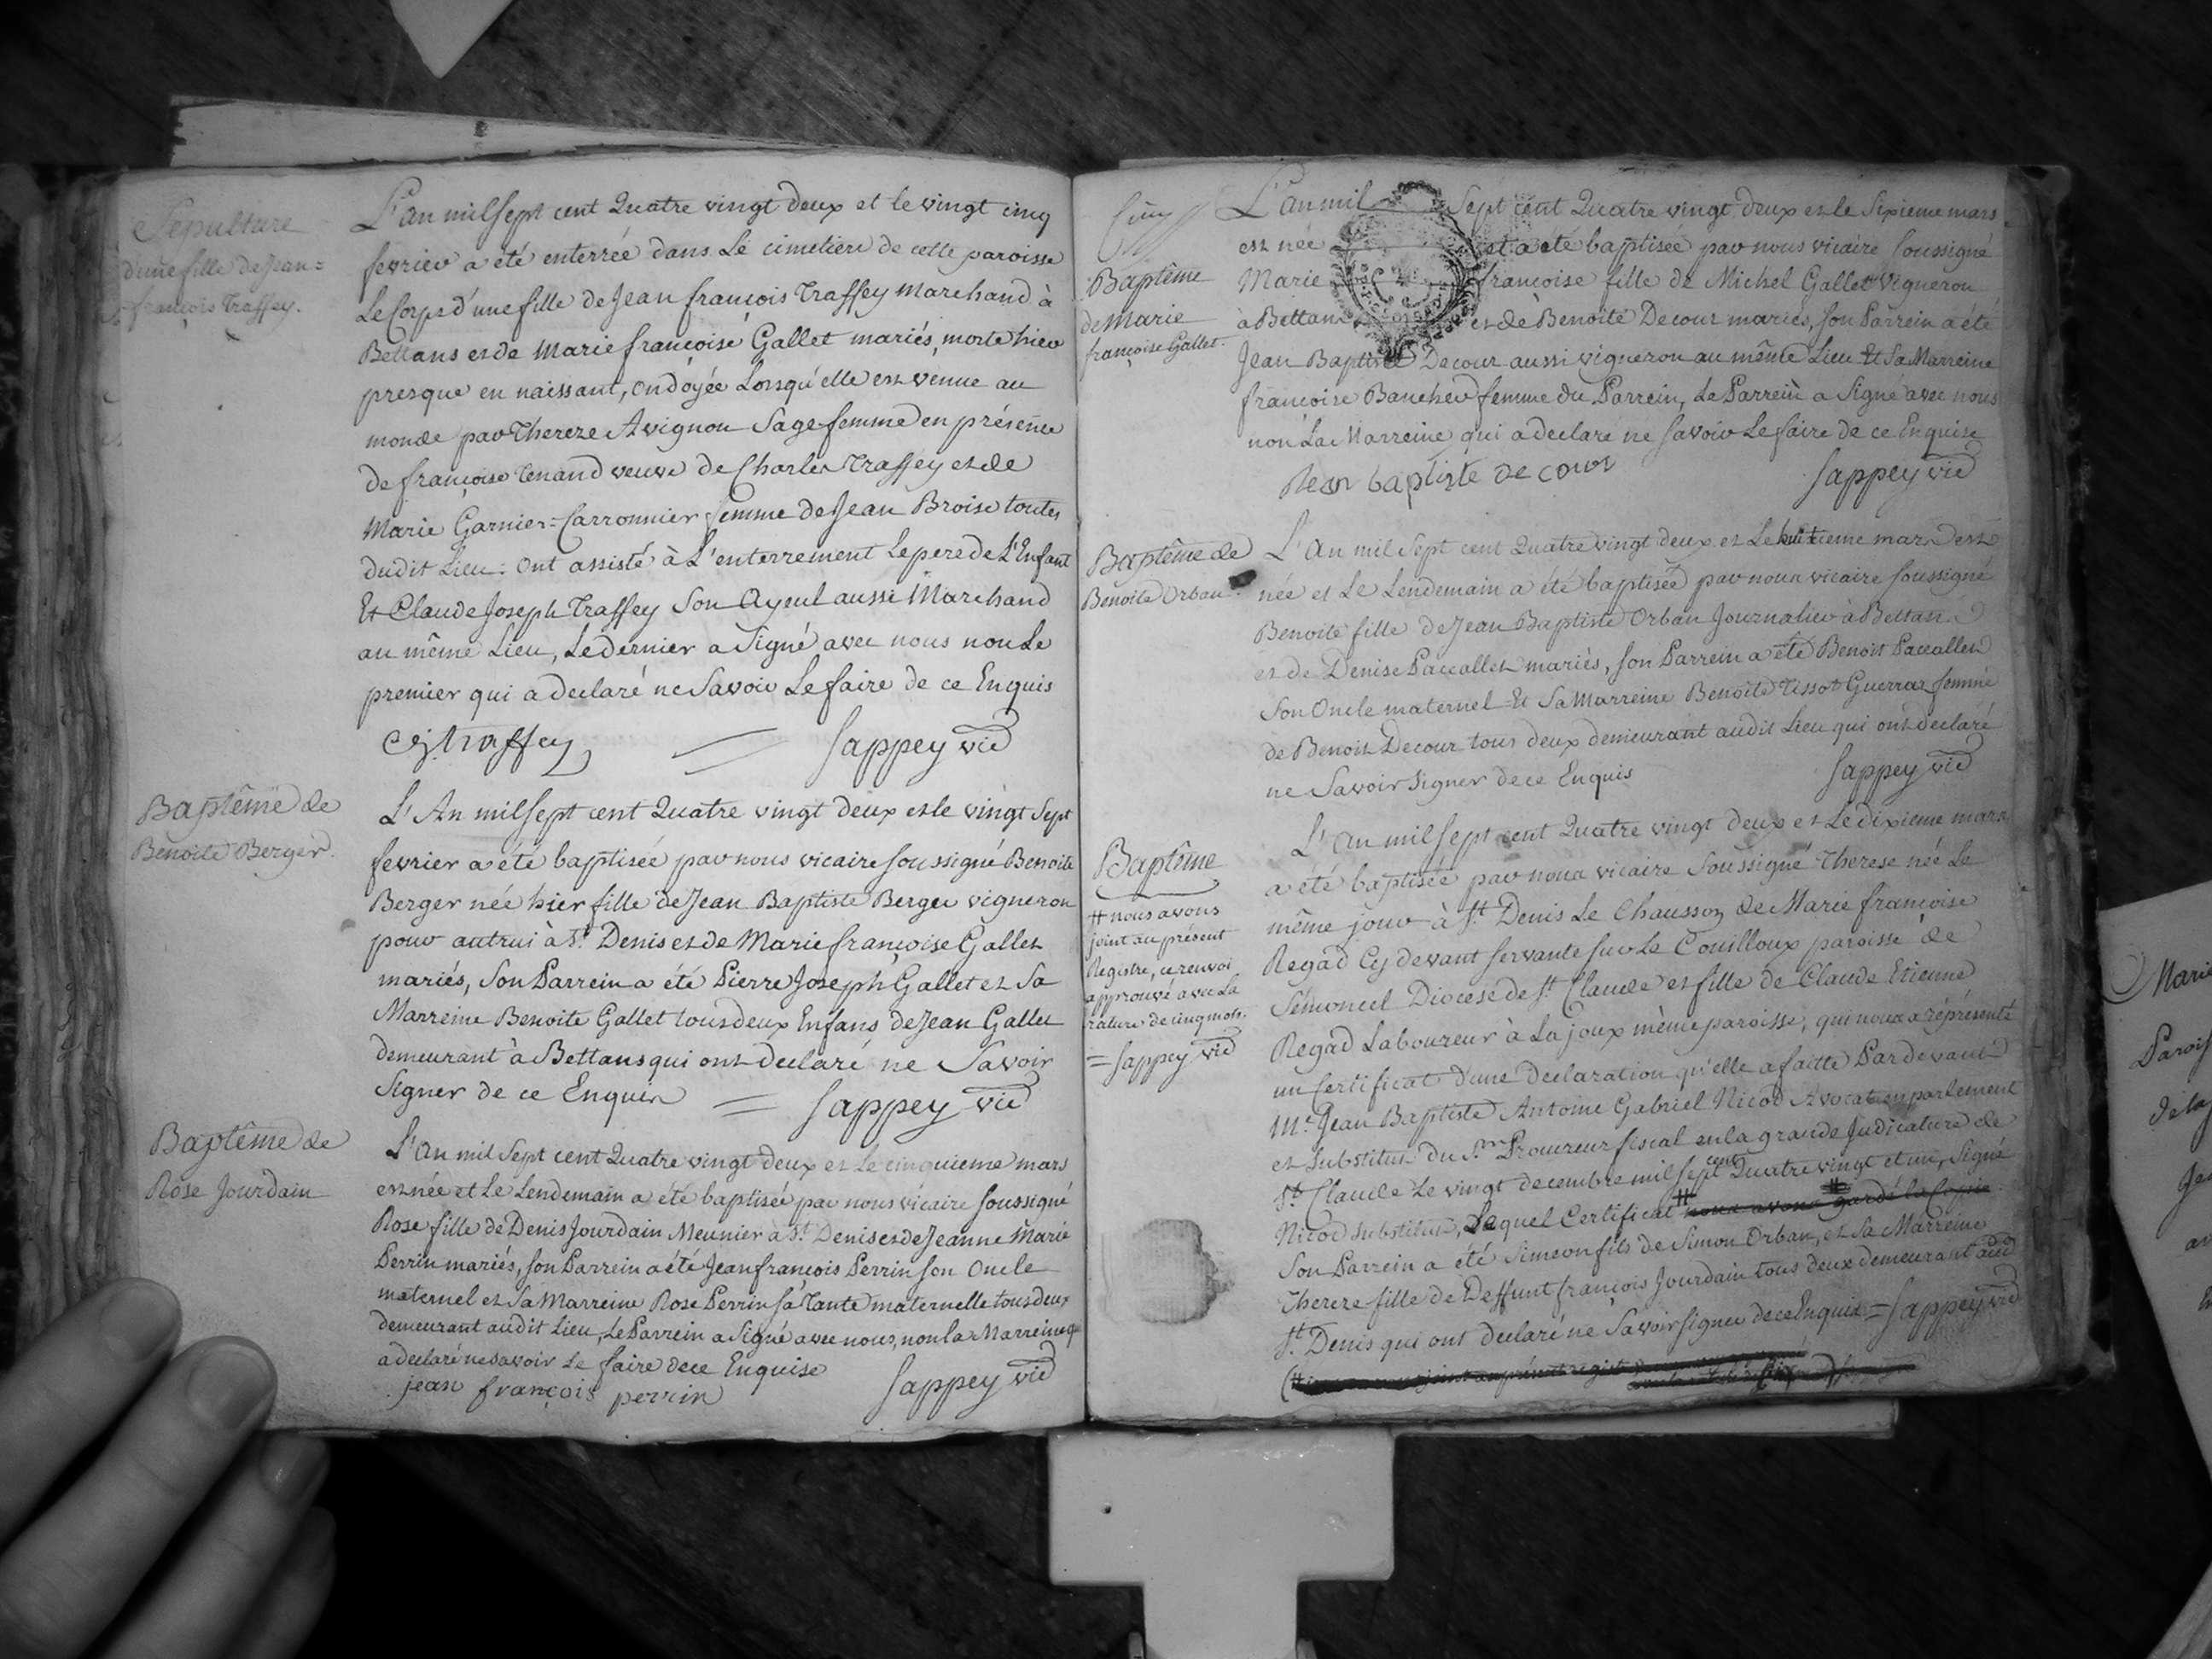 Sepulture
d'une fille de Jean=
françois Traffey.
L'an mil sept cent Quatre vingt deux et le vingt cinq
fevrier a été enterrée dans Le cimetiere de cette paroisse
Le Corps d'une fille de Jean françois Traffey Marchand à
Bettans et de Marie françoise Gallet mariés, morte hier
presque en naissant, ondoyée Lorsqu'elle est venue au
monde par Thereze Avignon Sage femme en présence
de françoise Tenand veuve de Charles Traffey et de
Marie Garnier=Carronnier femme de Jean Broise toutes
dudit Lieu: ont assisté à L'enterrement Le pere de L'Enfant
Et Claude Joseph Traffey Son Ayeul aussi Marchand
au même Lieu, Le dernier a Signé avec nous non Le
premier qui a declaré ne Savoir Le faire de ce Enquis
C j traffey = Sappey vic
Baptême de
Benoite Berger.
L'An mil sept cent Quatre vingt deux et le vingt sept
fevrier a été baptisée par nous vicaire soussigné Benoite
Berger née hier fille de Jean Baptiste Berger vigneron
pour autrui à St. Denis et de Marie françoise Gallet
mariés, Son Parrein a été Pierre Joseph Gallet et Sa
Marreine Benoite Gallet tous deux Enfans de Jean Gallet
demeurant à Bettans qui ont declaré ne Savoir
Signer de ce Enquis = Sappey vic
Baptême de
Rose Jourdain
L'an mil Sept cent Quatre vingt deux et Le cinquieme mars
est née et Le Lendemain a été baptisée par nous vicaire Soussigné
Rose fille de Denis Jourdain Meunier à St. Denis et de Jeanne Marie
Perrin mariés, son Parrein a été Jean françois Perrin son Oncle
maternel et Sa Marreine Rose Perrin sa Tante maternelle tous deux
demeurant audit Lieu, Le Parrein a Signé avec nous, non la Marreine qui
a declaré ne savoir Le faire de ce Enquise
jean françois perrin Sappey vic
Cinq
Baptême
de Marie
françoise Gallet.
L'an mil Sept cent Quatre vingt deux et le Sixieme mars
est née et a été baptisée par nous vicaire soussigné
Marie françoise fille de Michel Gallet vigneron
à Bettans et de Benoite Decour mariés, son Parrein a été
Jean Baptiste Decour aussi vigneron au même Lieu Et Sa Marreine
françoise Bauchew femme du Parrein, Le Parrein a Signé avec nous
non La Marreine qui a declaré ne savoir Le faire de ce Enquise
Jean baptiste de cour Sappey vic
Baptême de
Benoite Orban.
L'An mil Sept cent Quatre vingt deux et Le huitieme mars est
née et Le Lendemain a été baptisée par nous vicaire soussigné
Benoite fille de Jean Baptiste Orban Journalier à Bettans
et de Denise Paccallet mariés, son Parrein a été Benoit Paccallet
Son Oncle maternel Et Sa Marreine Benoite Tissot Guerraz femme
de Benoit Decour tous deux demeurant audit Lieu qui ont declaré
ne Savoir signer de ce Enquis Sappey vic
Baptême
# nous avons
joint au présent
Registre, ce renvoi
approuvé avec La
rature de cinq mots.
= Sappey vic
L'an mil sept cent Quatre vingt deux et Le dixieme mars
a été baptisée par nous vicaire Soussigné Therese née Le
même jour à St. Denis Le Chausson de Marie françoise
Regad Cy devant servante sur Le Couilloux paroisse de
Septmoncel Diocese de St. Claude et fille de Claude Etienne
Regad Laboureur à La joux même paroisse, qui nous a réprésenté
un Certificat d'une declaration qu'elle a faitte Pardevant
Mr. Jean Baptiste Antoine Gabriel Nicod Avocat en parlement
et Substitut du Sr. Procureur fiscal en la grande Judicature de
St. Claude Le vingt decembre mil sept cent Quatre vingt et un, Signé
Nicod substitut, Lequel Certificat # nous avons gardé la Copie
Son Parrein a été Simeon fils de Simon Orban, et Sa Marreine
Thereze fille de Deffunt françois Jourdain tous deux demeurant audit
St. Denis qui ont declaré ne Savoir signer de ce Enquis = Sappey vic
joint au présent regist